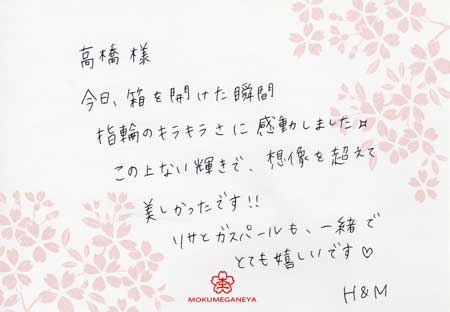 高橋様
今日、箱を開けた瞬間
指輪のキラキラさに感動しました♪
この上ない輝きで、想像を超えて
美しかったです!!
リサとガスパールも、一緒で
とても嬉しいです♡
H&M
杢
MOKUMEGANEYA